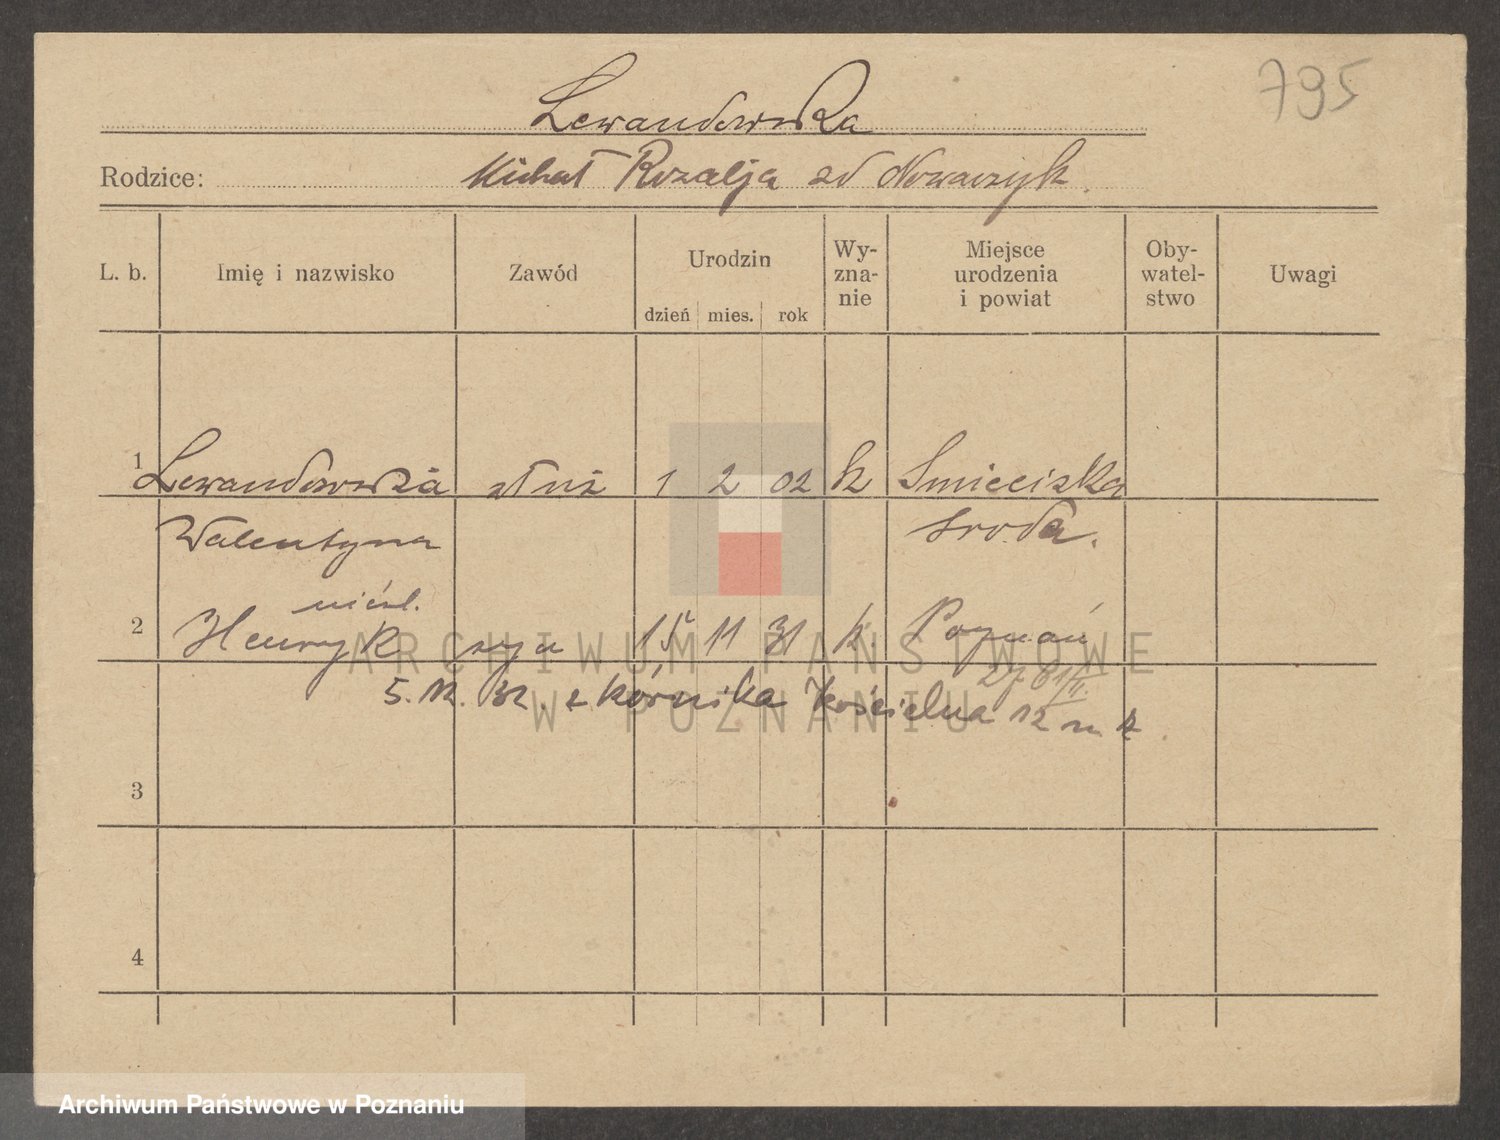 795
Lewandowska
Rodzice: Michał Rozalja zd Nowaczyk.
L. b. Imię i nazwisko Zawód Urodzin dzień mies. rok Wy-zna-nie Miejsce urodzenia i powiat Oby-watel-stwo Uwagi
1 Lewandowska służ 1 2 02 k Smieciska
Walentyna Sroda.
nieśl.
2 Henryk syn 15 11 31 k. Poznań
27 81/II.
5. 12. 32. z Kórnika Kościelna 12 m
3
4
ARCHIWUM PAŃSTWOWE
W POZNANIU
Archiwum Państwowe w Poznaniu